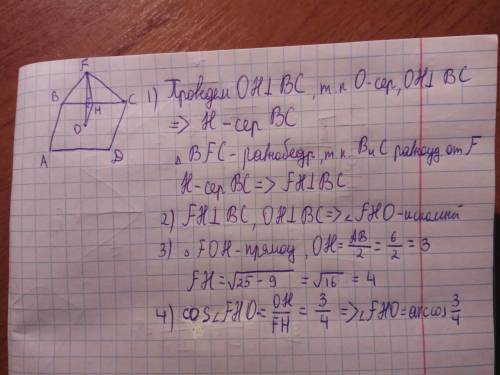 F
B
C
H
O
A
D
1) Проведем OH⊥BC, т.к O-сер, OH⊥BC
=> H-сер BC
△ BFC - равнобедр, т.к. B и C равноуд. от F
H-сер BC => FH⊥BC
2) FH⊥BC, OH⊥BC => ∠FHO-искомый
3) △ FOH-прямоу, OH = AB/2 = 6/2 = 3
FH = √25-9 = √16 = 4
4) cos∠FHO = OH/FH = 3/4 => ∠FHO = arccos 3/4